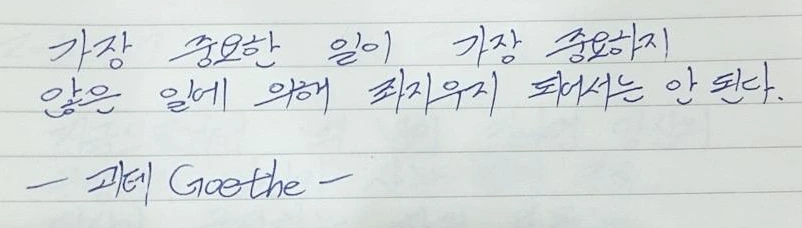 가장 중요한 일이 가장 중요하지
않은 일에 의해 좌지우지 되어서는 안 된다.
- 괴테 Goethe -